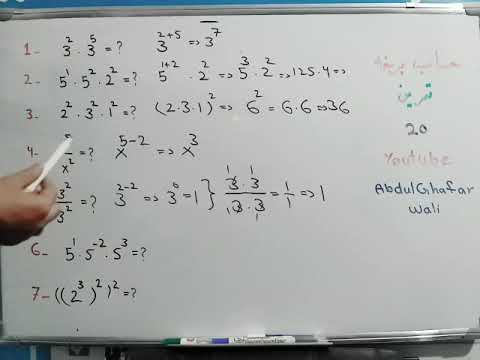 1- 3² · 3⁵ = ? 3²⁺⁵ => 3⁷
2- 5¹ · 5² · 2² = ? 5¹⁺² · 2² => 5³ · 2² => 125 · 4 =>
3- 2² · 3² · 1² = ? (2·3·1)² => 6² = 6·6 => 36
4- /x² = ? x⁵⁻² => x³
3²/3² = ? 3²⁻² => 3⁰ = 1 } 3·3/3·3 = 1/1 => 1
6- 5¹ · 5⁻² · 5³ = ?
7- ((2³)²)² = ?
حساب
تمرین
20
Youtube
AbdulGhafar
Wali